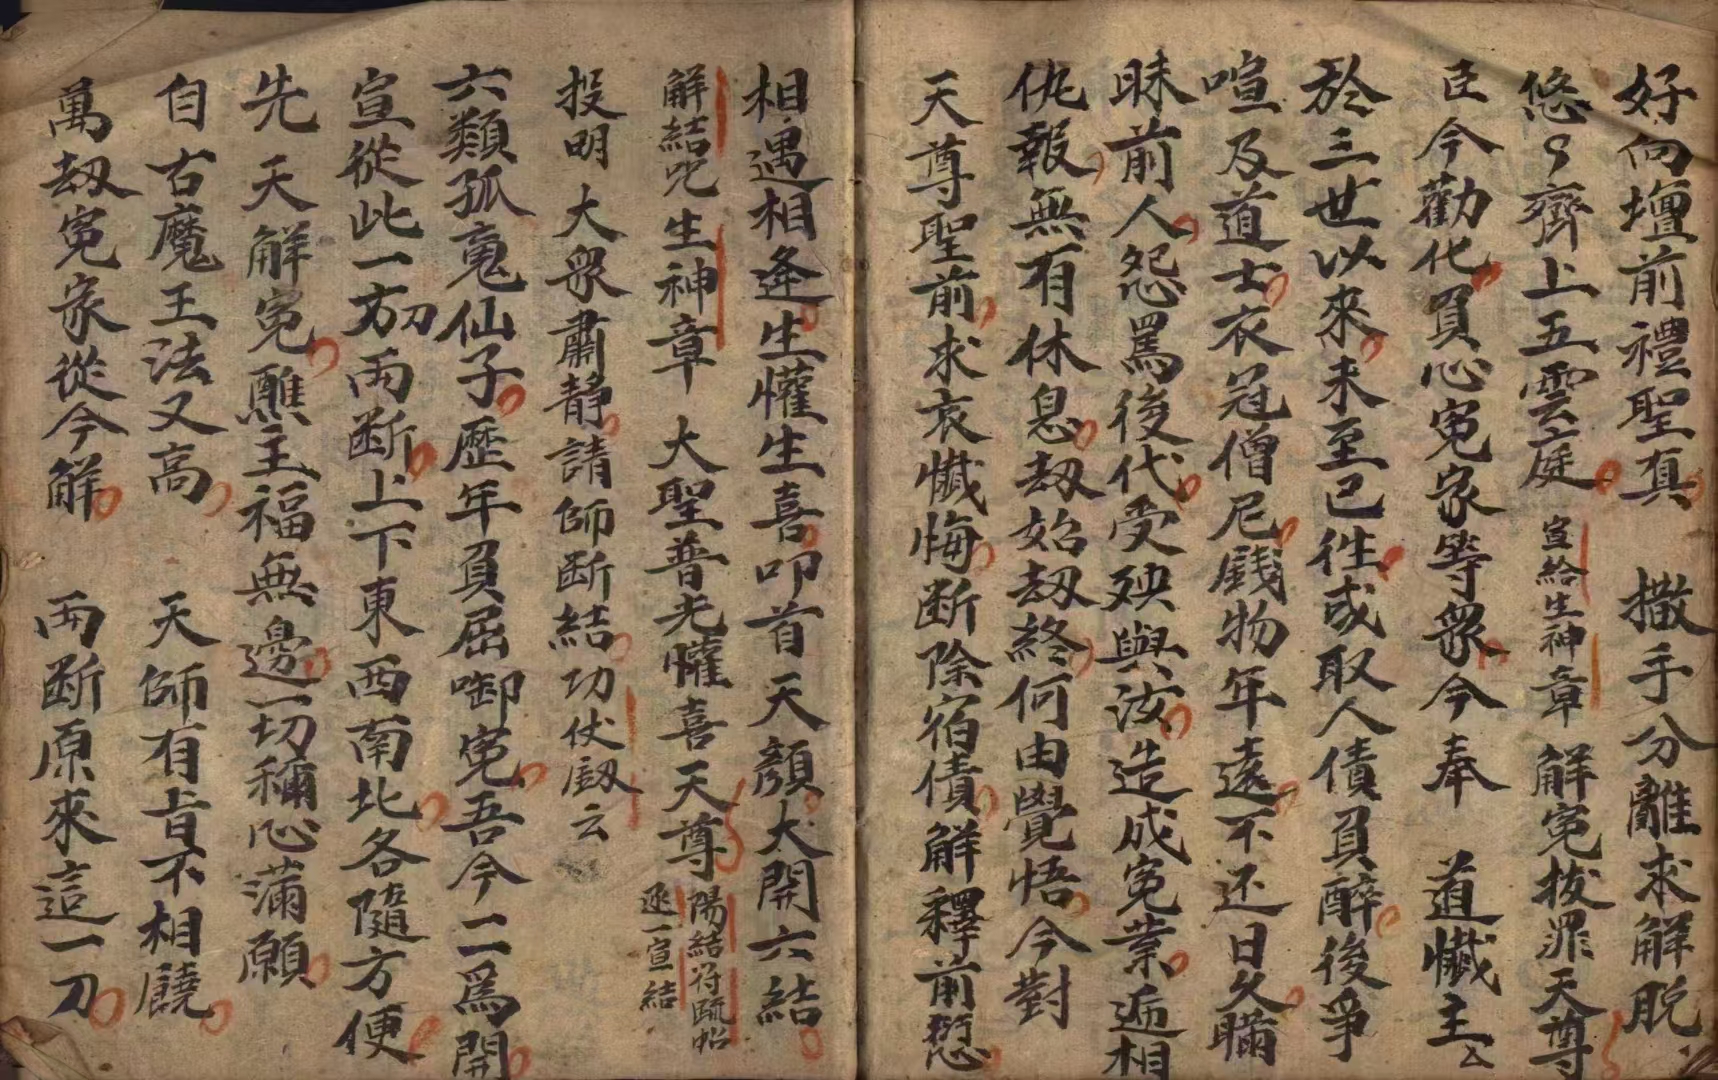 好向壇前禮聖真　撒手分離求解脫
悠々齊上五雲庭　宣給生神章　解冤拔罪天尊
臣今勸化負心冤家等衆今奉　道懺主厶
於三世以來未至已徃或取人債負醉後爭
喧及道士衣冠僧尼錢物年遠不还日久瞞
昧前人怨罵後代受殃與汝造成冤業逓相
仇報無有休息劫始劫終何由覺悟今對
天尊聖前求哀懺悔断除宿債解釋前愆
相遇相逢生懽生喜叩首天顏大開六結
解結咒　生神章　大聖普光懽喜天尊　陽結符疏帖
逐一宣結
投明　大衆肅静請師断結　功仗劔云
六類孤寃仙子歷年負屈啣冤吾今一一爲開
宣從此一方刀兩断上下東西南北各隨方便
先天解冤醮主福無邊一切稱心滿願
自古魔王法又高　天師有旨不相饒
萬劫冤家從今解　兩断原來這一刀